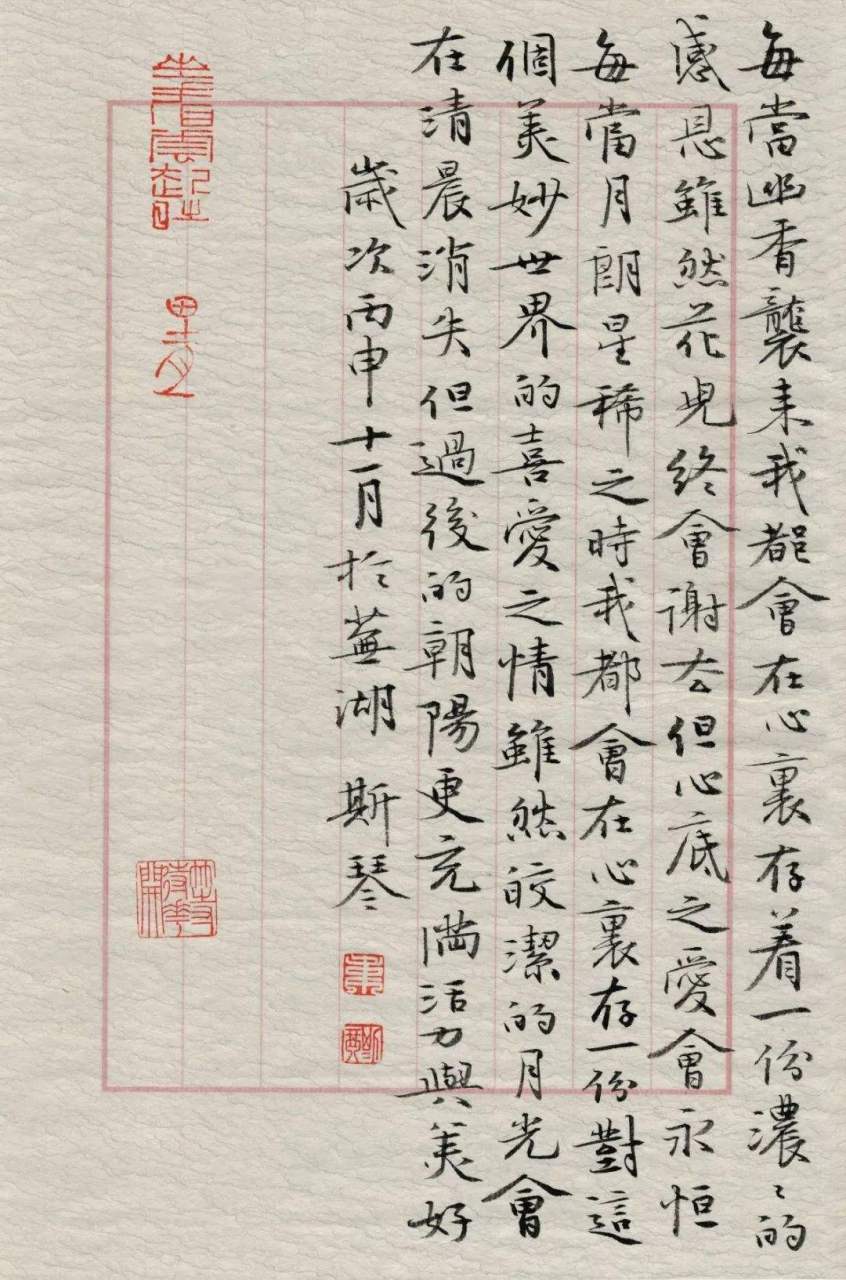 每當幽香襲来我都會在心裏存着一份濃〻的
感恩雖然花兒終會謝去但心底之愛會永恒
每當月朗星稀之時我都會在心裏存一份對這
個美妙世界的喜愛之情雖然皎潔的月光會
在清晨消失但過後的朝陽更充满活力與美好
歲次丙申十一月於蕪湖 斯琴